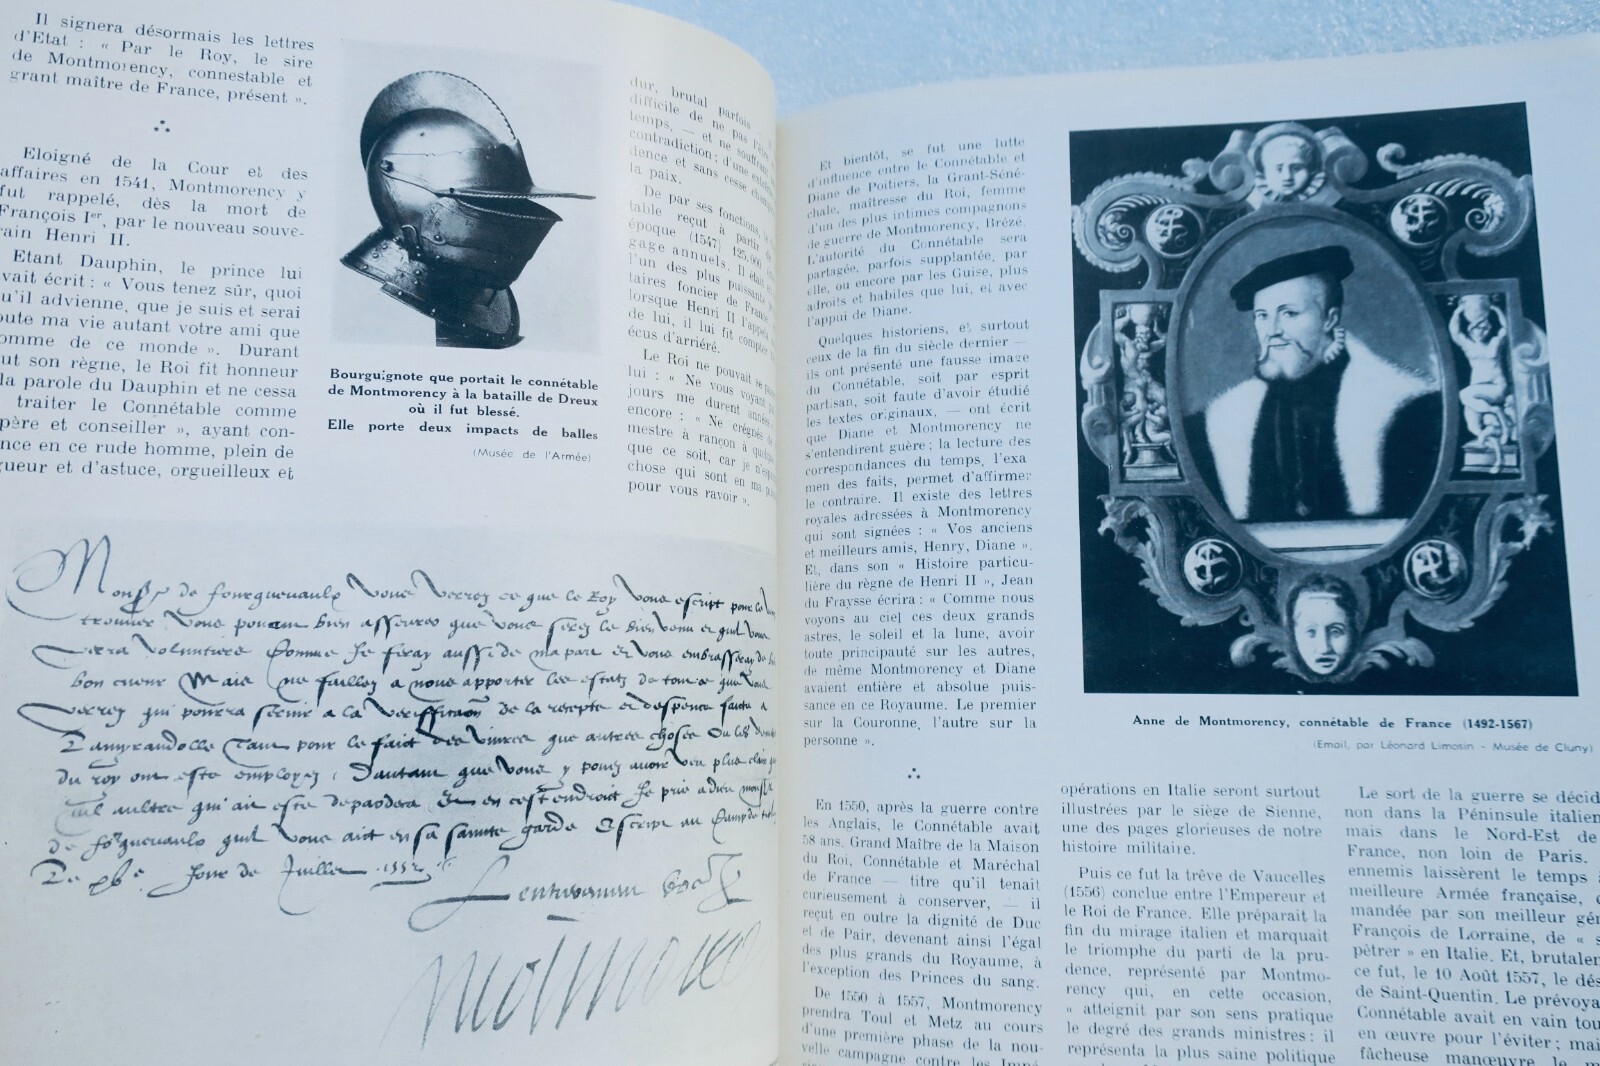 Il signera désormais les lettres
d'Etat : « Par le Roy, le sire
de Montmorency, connestable et
grant maître de France, présent ».
Eloigné de la Cour et des
affaires en 1541, Montmorency y
fut rappelé, dès la mort de
François Ier, par le nouveau souve-
rain Henri II.
Etant Dauphin, le prince lui
avait écrit : « Vous tenez sûr, quoi
qu'il advienne, que je suis et serai
toute ma vie autant votre ami que
homme de ce monde ». Durant
tout son règne, le Roi fit honneur
la parole du Dauphin et ne cessa
traiter le Connétable comme
père et conseiller », ayant con-
ce en ce rude homme, plein de
gueur et d'astuce, orgueilleux et
Bourguignote que portait le connétable
de Montmorency à la bataille de Dreux
où il fut blessé.
Elle porte deux impacts de balles
(Musée de l'Armée)
dur, brutal parfois —
difficile de ne pas l'être
temps, — et ne souffrant
contradiction ; d'une
dence et sans cesse
la paix.
De par ses fonctions, le
table reçut à partir de
époque (1547) 125.000
gage annuels. Il était
l'un des plus puissants
taires foncier de France
lorsque Henri II l'appela
de lui, il lui fit compter
écus d'arriéré.
Le Roi ne pouvait se
lui : « Ne vous voyant
jours me durent années
encore : « Ne crégnés de
mestre à rançon à quelque
que ce soit, car je n'
chose qui sont en ma
pour vous ravoir ».
Mons de fourquevaulx vous verrez ce que le Roy vous escript pour le
trouver vous pouvant bien asseurer que vous serez le bien venu et quil vous
verra voluntiers comme je feray aussi de ma part et vous embrasseray de
bon cueur Mais ne failley a nous apporter les estatz de tout ce que vous
verrez qui pourra servir a la veriffication de la recepte et despence faicte a
tant pour le faict des vivres que autres choses ou les
du roy ont este employez, d'autant que vous y pouez avoir veu plus clair que
nul aultre qui ait este par dela Et en cest endroit Je prie a dieu monsr
de forquevaulx quil vous aict en sa saincte garde Escript au Camp de
le jour de Juillet 155
Montmorency
Et bientôt, se fut une lutte
d'influence entre le Connétable et
Diane de Poitiers, la Grant-Séné-
chale, maîtresse du Roi, femme
d'un des plus intimes compagnons
de guerre de Montmorency, Brézé.
L'autorité du Connétable sera
partagée, parfois supplantée, par
elle, ou encore par les Guise, plus
adroits et habiles que lui, et avec
l'appui de Diane.
Quelques historiens, et surtout
ceux de la fin du siècle dernier —
ils ont présenté une fausse image
du Connétable, soit par esprit
partisan, soit faute d'avoir étudié
les textes originaux, — ont écrit
que Diane et Montmorency ne
s'entendirent guère ; la lecture des
correspondances du temps, l'exa
men des faits, permet d'affirmer
le contraire. Il existe des lettres
royales adressées à Montmorency
qui sont signées : « Vos anciens
et meilleurs amis, Henry, Diane ».
Et, dans son « Histoire particu-
lière du règne de Henri II », Jean
du Fraysse écrira : « Comme nous
voyons au ciel ces deux grands
astres, le soleil et la lune, avoir
toute principauté sur les autres,
de même Montmorency et Diane
avaient entière et absolue puis-
sance en ce Royaume. Le premier
sur la Couronne, l'autre sur la
personne ».
Anne de Montmorency, connétable de France (1492-1567)
(Email, par Léonard Limosin - Musée de Cluny)
En 1550, après la guerre contre
les Anglais, le Connétable avait
58 ans. Grand Maître de la Maison
du Roi, Connétable et Maréchal
de France — titre qu'il tenait
curieusement à conserver, — il
reçut en outre la dignité de Duc
et de Pair, devenant ainsi l'égal
des plus grands du Royaume, à
l'exception des Princes du sang.
De 1550 à 1557, Montmorency
prendra Toul et Metz au cours
d'une première phase de la nou-
velle campagne contre les Impé-
opérations en Italie seront surtout
illustrées par le siège de Sienne,
une des pages glorieuses de notre
histoire militaire.
Puis ce fut la trêve de Vaucelles
(1556) conclue entre l'Empereur et
le Roi de France. Elle préparait la
fin du mirage italien et marquait
le triomphe du parti de la pru-
dence, représenté par Montmo-
rency qui, en cette occasion,
« atteignit par son sens pratique
le degré des grands ministres : il
représenta la plus saine politique
Le sort de la guerre se décid
non dans la Péninsule italien
mais dans le Nord-Est de
France, non loin de Paris.
ennemis laissèrent le temps à
meilleure Armée française,
mandée par son meilleur gén
François de Lorraine, de « s
pètrer » en Italie. Et, brutalem
ce fut, le 10 Août 1557, le dés
de Saint-Quentin. Le prévoya
Connétable avait en vain tou
en œuvre pour l'éviter ; mai
fâcheuse manœuvre le